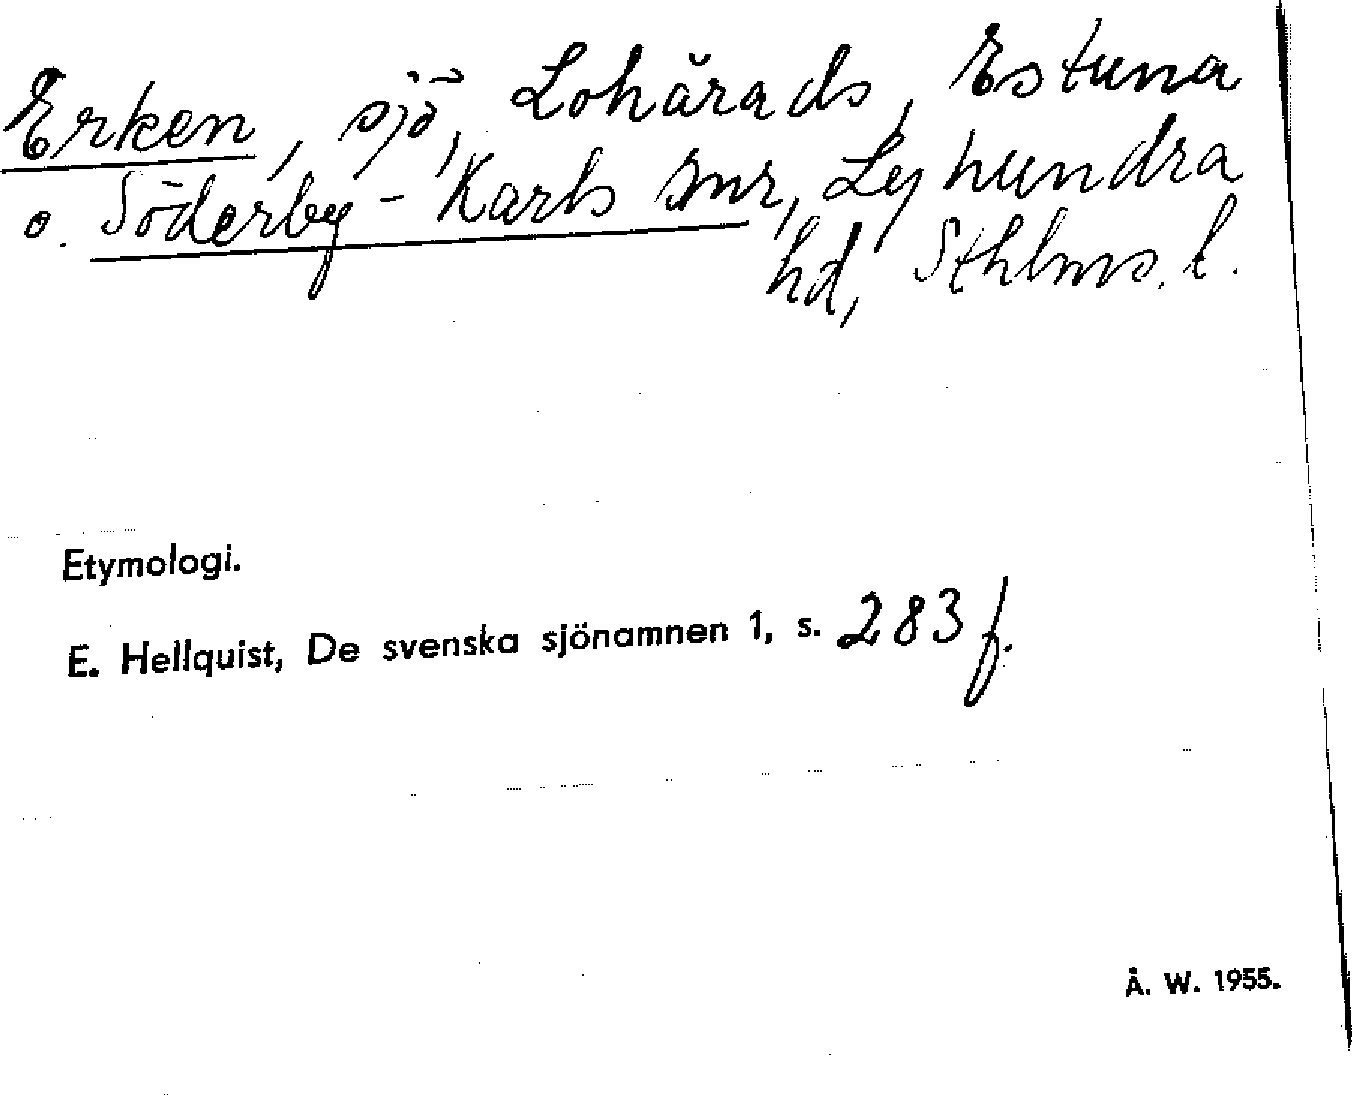 Erken, sjö, Lohärads, Estuna
o. Söderby-Karls snr, Lyhundra
hd, Sthlms. l.
Etymologi.
E. Hellquist, De svenska sjönamnen 1, s. 283 f.
Å. W. 1955.